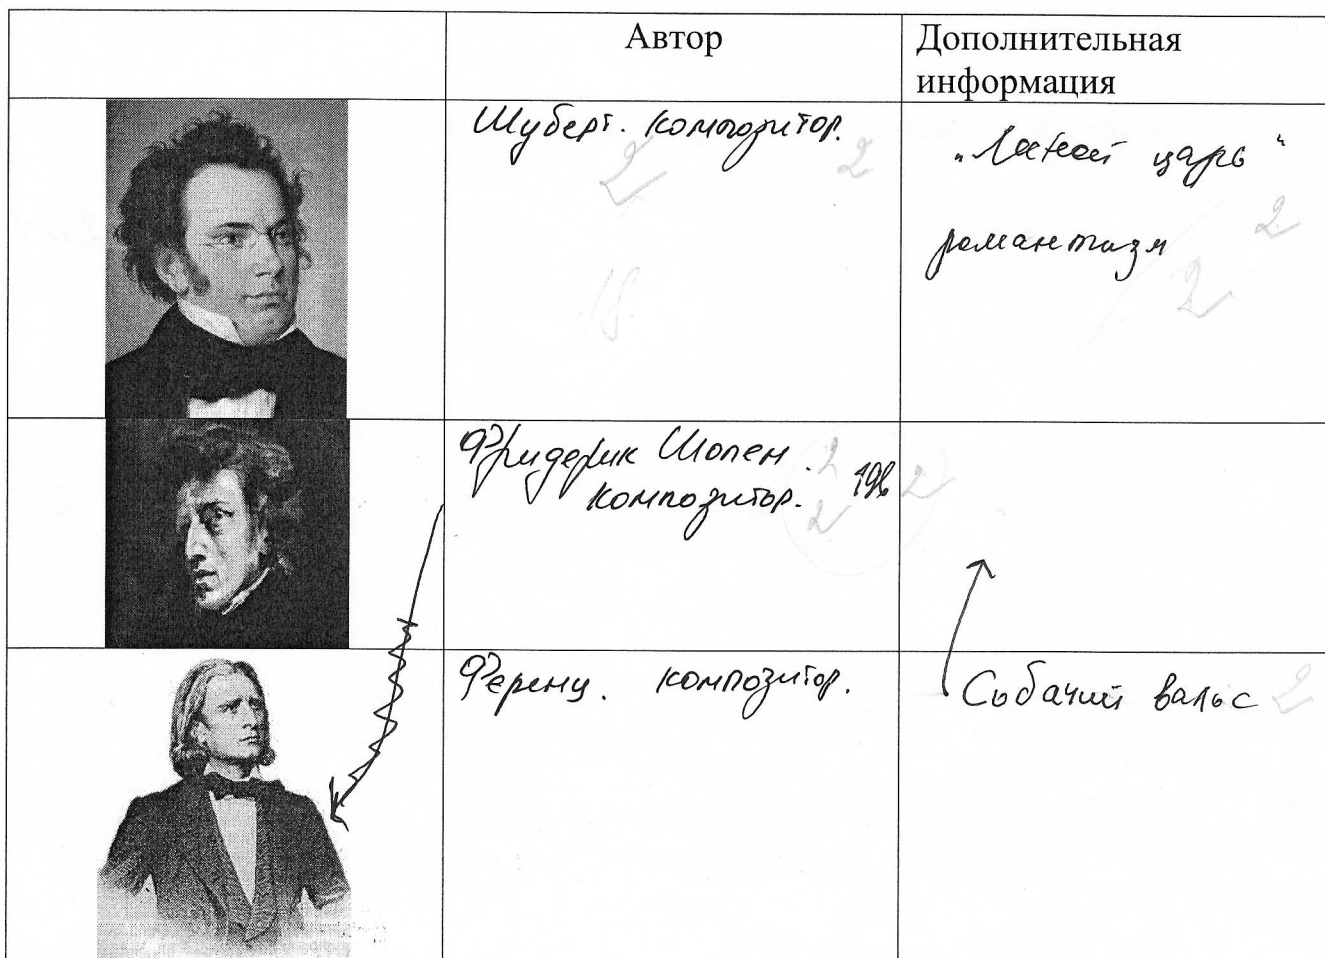 Автор
Дополнительная
информация
Шуберт. композитор.
2
2
"Лесной царь"
романтизм
2
2
18.
Фридерик Шопен.
композитор.
2
2
2
Ференц. композитор.
Собачий вальс
2